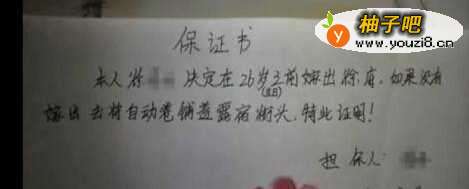 柚子吧
www.youzi8.cn
保证书
本人徐 决定在26岁之前嫁出徐府，如果没有
嫁出去将自动卷铺盖露宿街头，特此证明！
担保人：